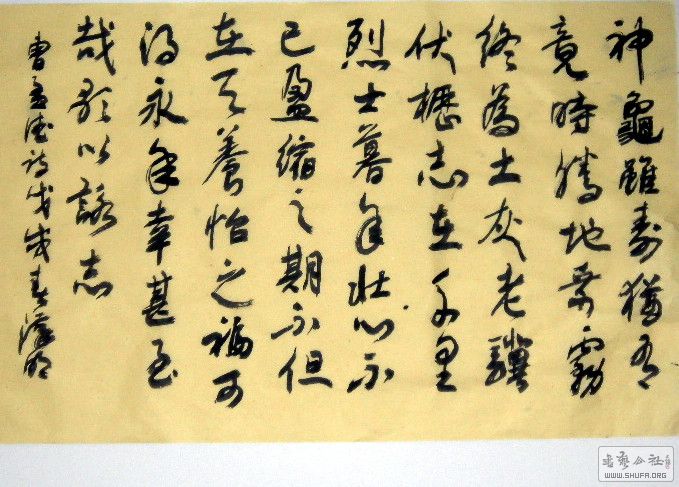 神龜雖壽猶有
竟時騰虵乘霧
終為土灰老驥
伏櫪志在千里
烈士暮年壯心不
已盈縮之期不但
在天養怡之福可
得永年幸甚至
哉歌以詠志
曹孟德詩戊
书艺公社
WWW.SHUFA.ORG